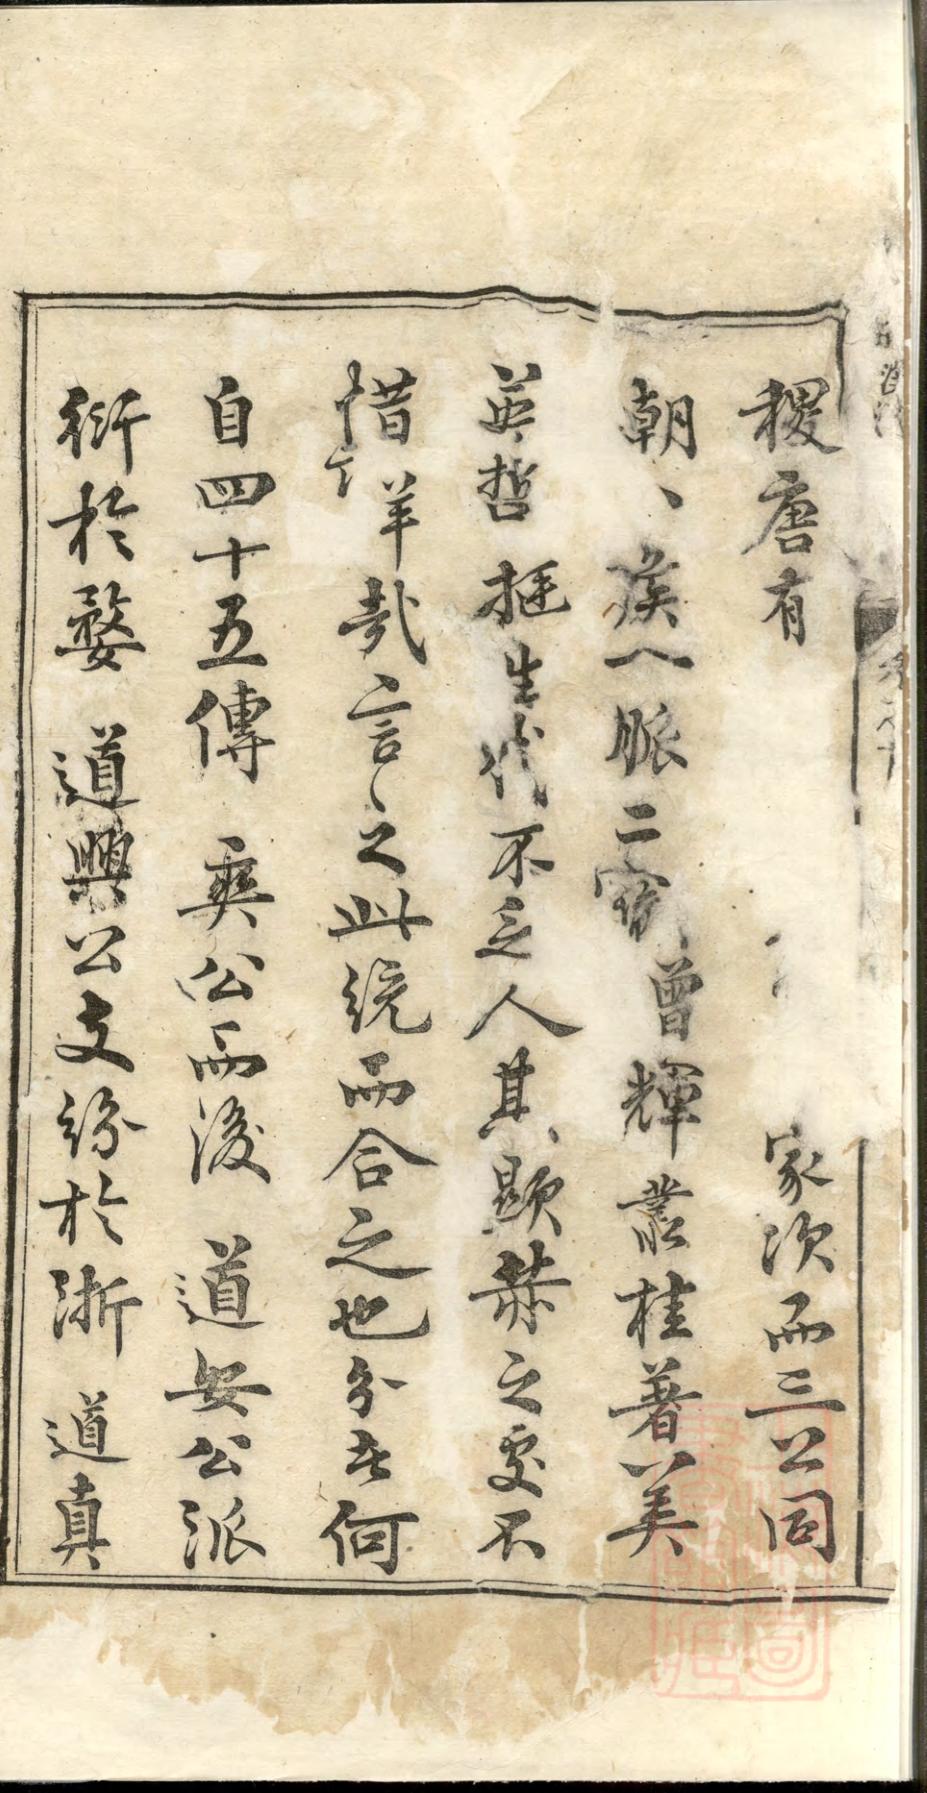 稷唐有家次而三公同
朝、侯一脈二竇曾輝叢桂著美
英哲挺生代不乏人其顯榮之處不
惜詳哉言之此統而合之也分者何
自四十五傳奭公而後道安公派
衍於婺道興公支紛於浙道真